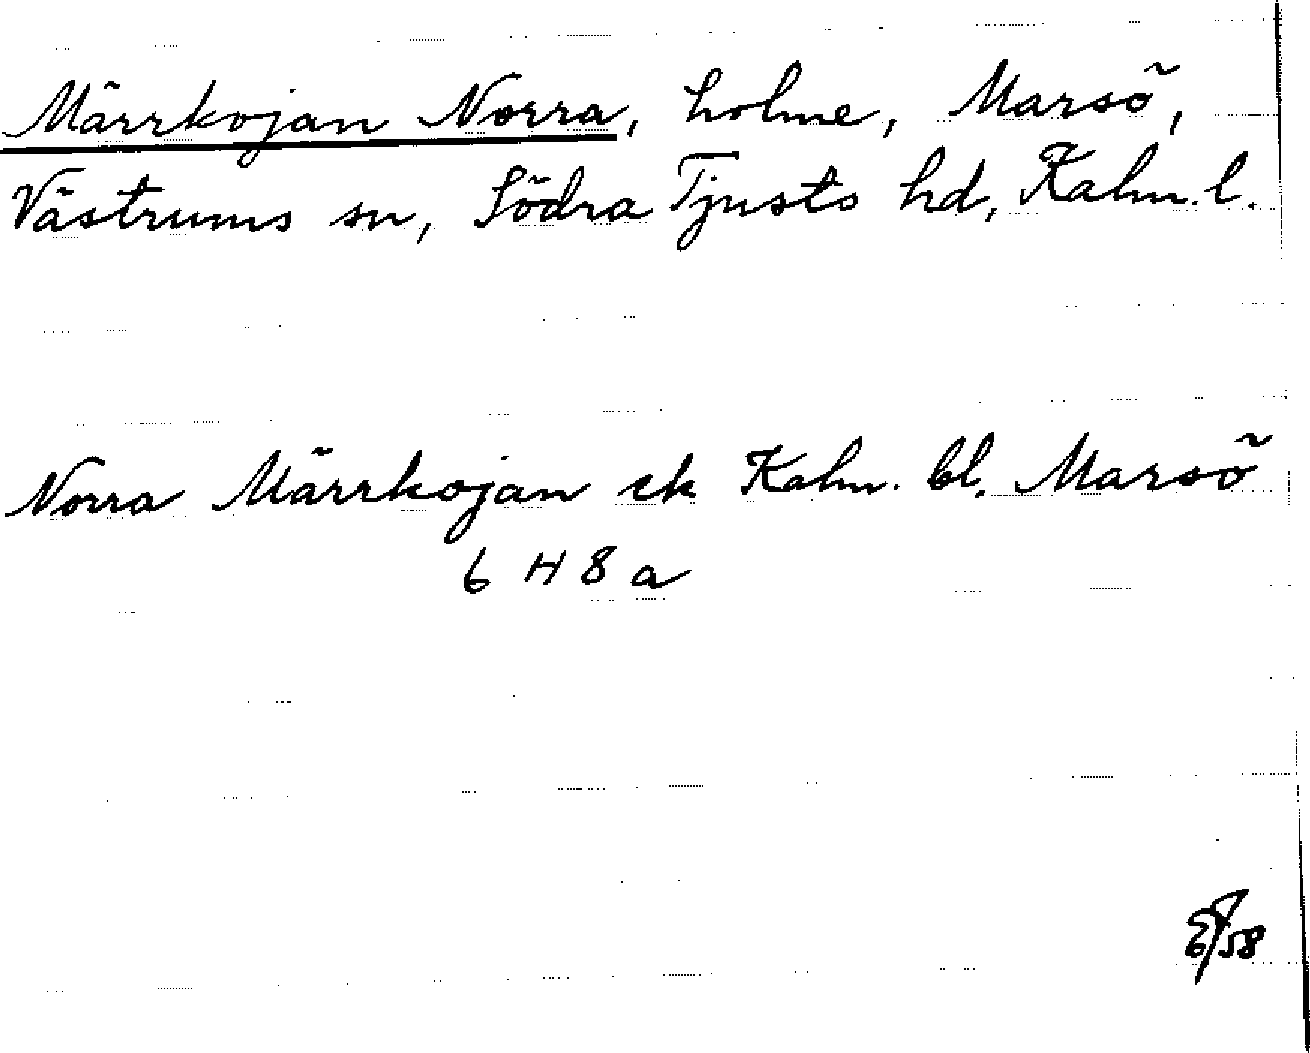 Märrkojan Norra, holme, Marsö,
Västrums sn, Södra Tjusts hd, Kalm. l.
Norra Märrkojan ek Kalm. bl. Marsö
6 H 8 a
58